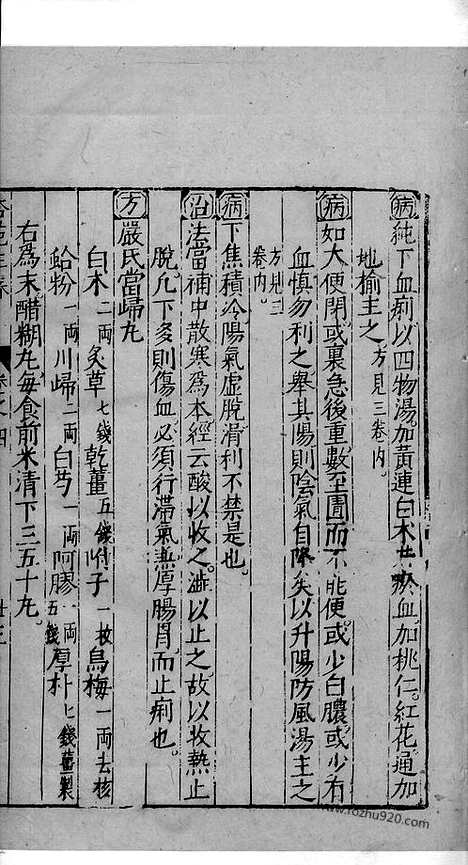 病純下血痢以四物湯加黃連白木其瘀血加桃仁紅花通加
地榆主之方見三卷內
病如大便閉或裏急後重數至圊而不能便或少白膿或少有
血慎勿利之舉其陽則陰氣自降矣以升陽防風湯主之
方見三卷內
病下焦積冷陽氣虛脫滑利不禁是也
治法當補中散寒為本經云酸以收之澁以止之故以收熱止
脫凡下多則傷血必須行滯氣濇厚腸胃而止痢也
方嚴氏當歸丸
白木二兩炙草七錢乾薑五錢附子一枚烏梅一兩去核
蛤粉一兩川歸二兩白芍一兩阿膠一兩五錢厚朴七錢薑製
右為末醋糊丸每食前米清下三五十丸
卷之四
www.rozhu920.com